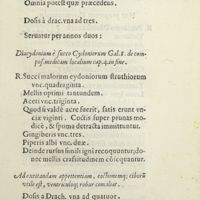 Omnia potest quæ præcedens.
Dosis à drac. vna ad tres.
Seruatur per annos duos:
Diacydonium è succo Cydoniorum Gal. 8. de compos.
medicam. localium cap. 4. in fine.
R. Succi malorum cydoniorum struthiorum
vnc. quadraginta.
Mellis optimi tantundem.
Aceti vnc. triginta.
Quod si valdè acre fuerit, satis erunt vnciæ
viginti. Coctis super prunas modicè,
& detracta spuma immittuntur.
Gingiberis vnc. tres.
Piperis albi vnc. duæ.
Deinde rursus simili igni recoquuntur, donec
mellis crassitudinem cóicquantur.
Ad excitandam appetentiam, coctionemq; ciborū
vtile est, ventriculoq; robur conciliat.
Dosis à Drach. vna ad quatuor.